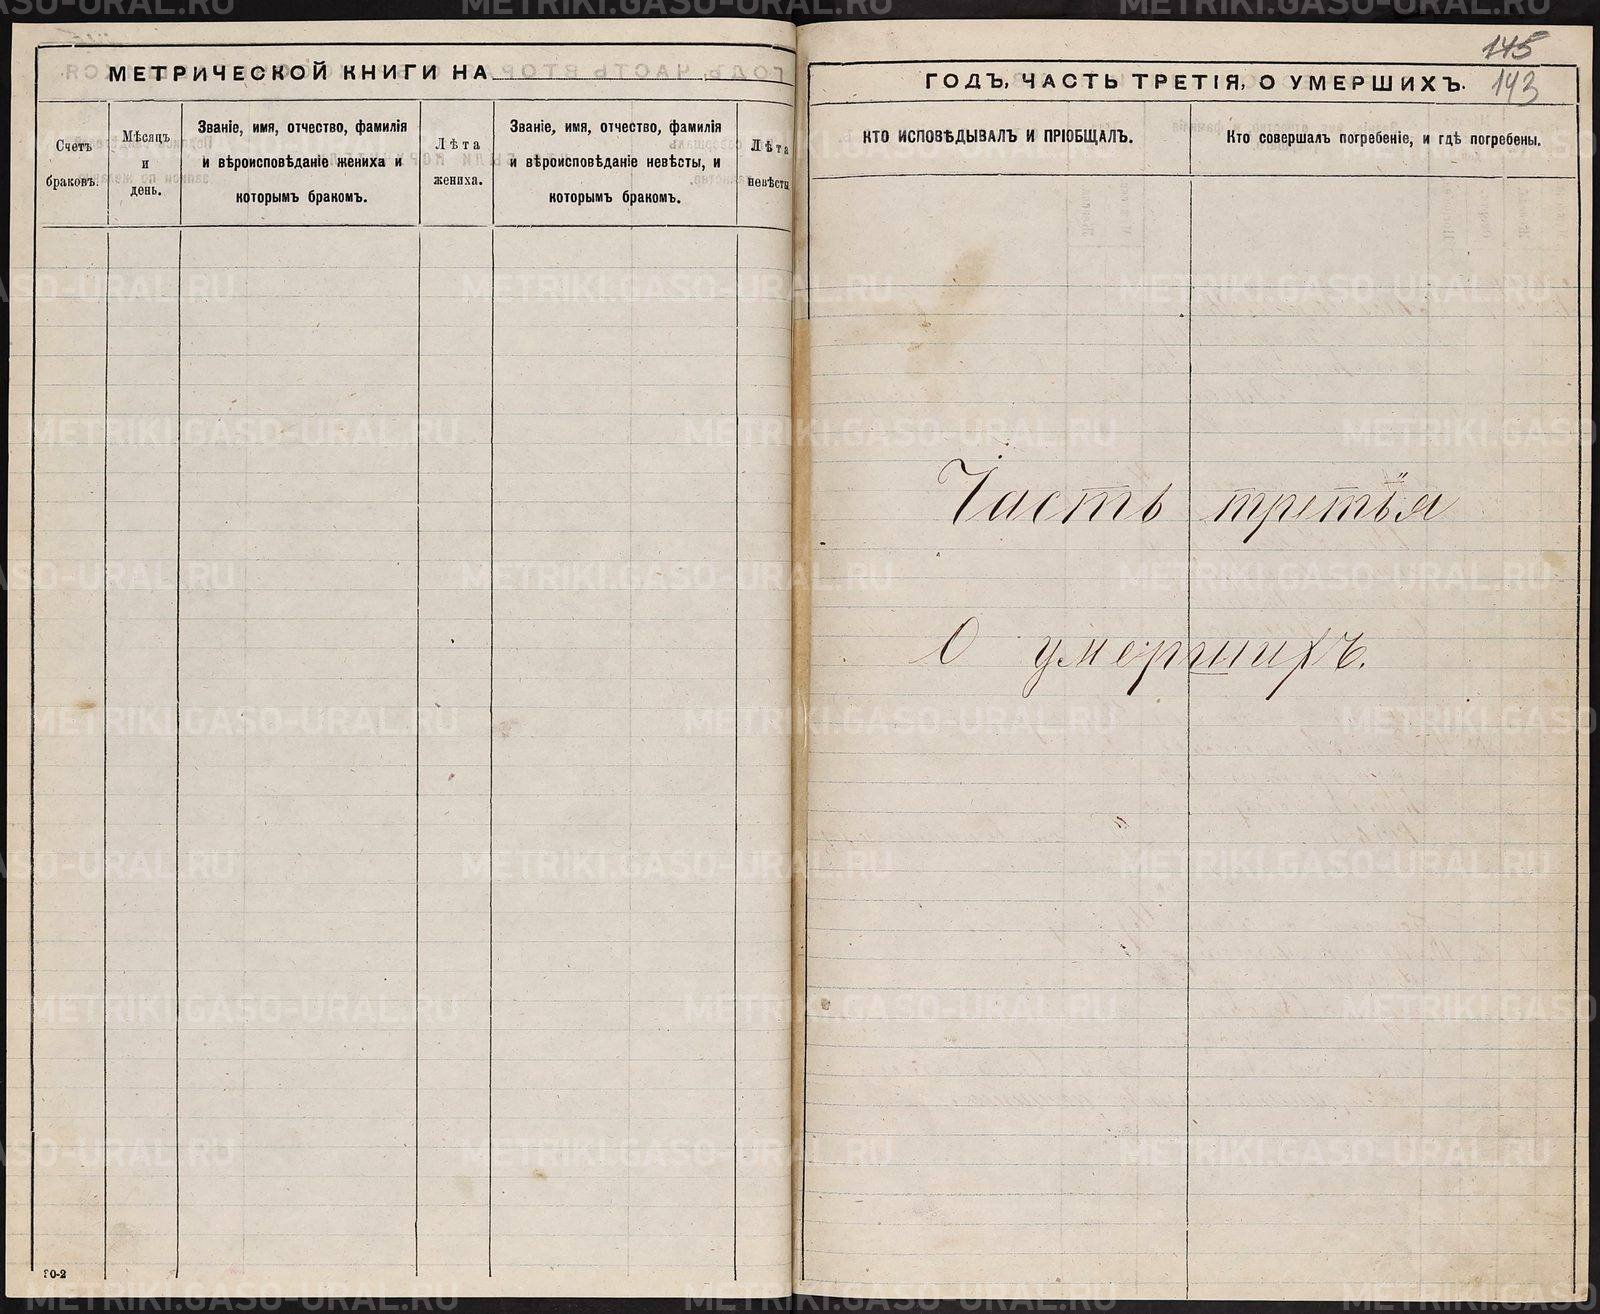 МЕТРИЧЕСКОЙ КНИГИ НА
Счетъ
браковъ.
Мѣсяцъ
и
день.
Званіе, имя, отчество, фамилія
и вѣроисповѣданіе жениха и
которымъ бракомъ.
Лѣта
жениха.
Званіе, имя, отчество, фамилія
и вѣроисповѣданіе невѣсты, и
которымъ бракомъ.
Лѣта
невѣсты
145
143
ГОДЪ, ЧАСТЬ ТРЕТІЯ, О УМЕРШИХЪ.
КТО ИСПОВѢДЫВАЛЪ И ПРІОБЩАЛЪ.
Кто совершалъ погребеніе, и гдѣ погребены.
Часть третья
О умершихъ.
METRIKI.GASO-URAL.RU